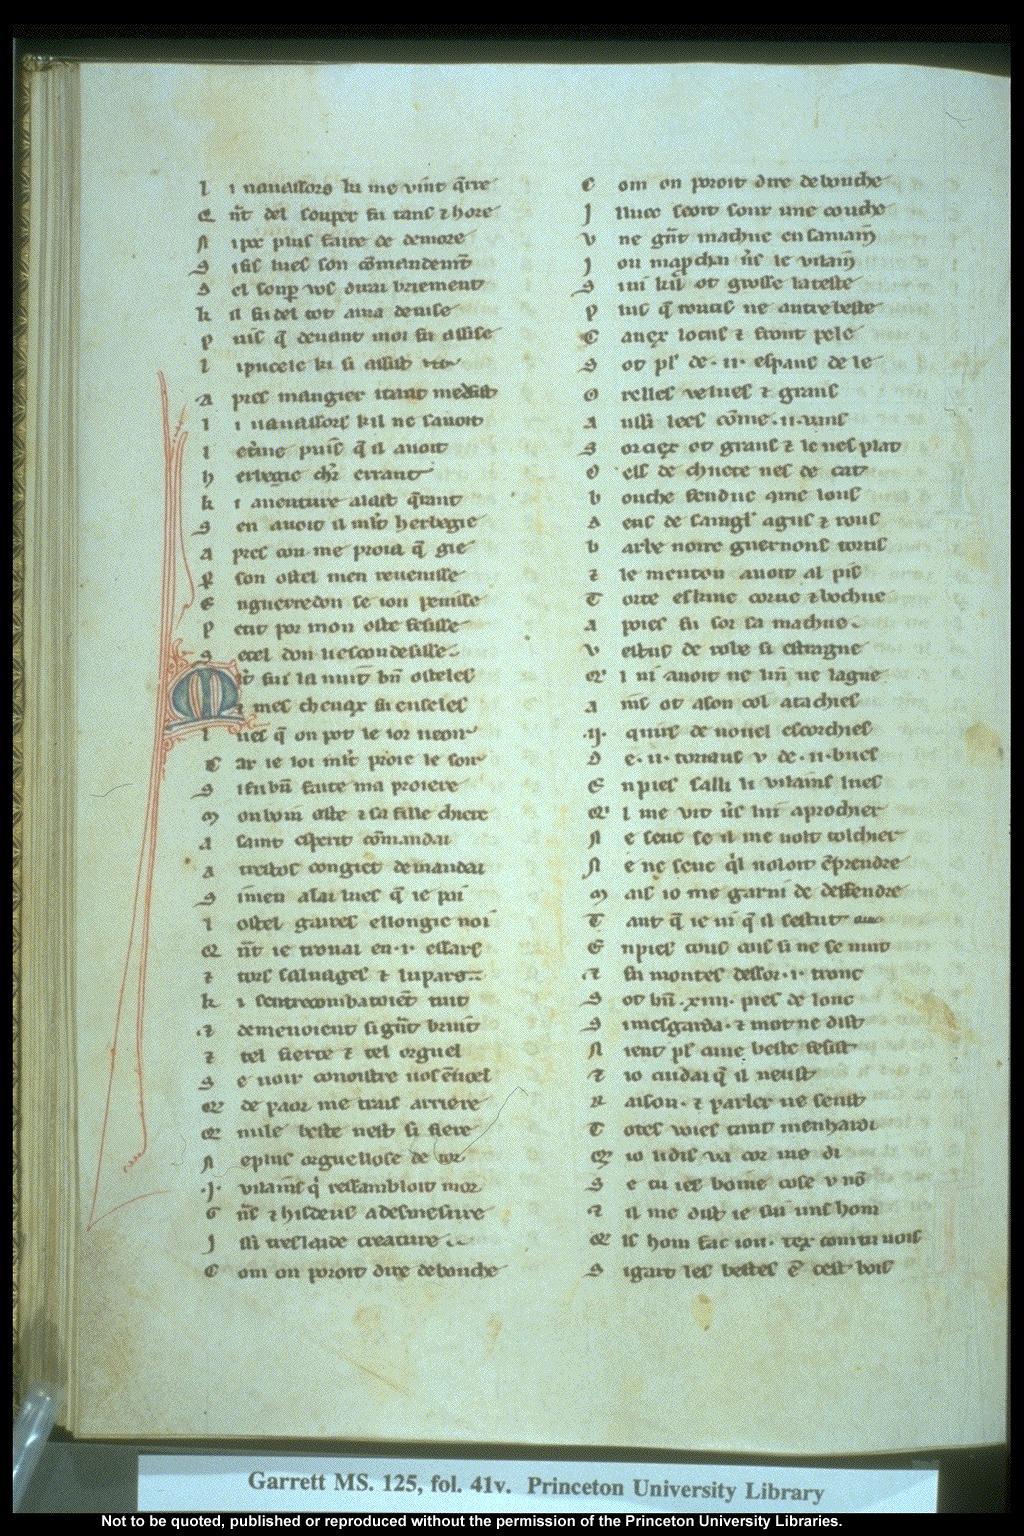 L i vavassors ki me vint q̄rre
Q n̄t del souper fu tans ⁊ hore
N ipoc plus faire de demore
S i fis lues son cōmandem̄t
D el soup̱ vos dirai briement
K il fu del tot a ma devise
P uis q̄ devant moi fu assise
L i pucele ki si assist
A pres mangier itant me dist
L i vavassors kil ne savoit
L e t̄me puis q̄ il avoit
H erbegie chl̄r errant
K i aventure alast q̄rant
S en avoit il m̄lt herbegie
A pres cou me proia q̄ gie
P son ostel men revenisse
E n guerredon se iou peuisse
P ent por mon oste fesisse
S e cel don li escondesisse
M lt̄ fui la nuit bn̄ osteles
⁊ mes chevax fu enseles
L ues q̄ on pot le ior veoir
C ar ie loi ml̄t proie le soir
S i fu bn̄ faite ma proiere
M on boin oste ⁊ sa fille chiere
A saint esperit cōmandai
A trestos congiet demandai
S i m̄en alai lues q̄ ie poi
L ostel gaires eslongie noi
Q n̄t ie trovai en ·i· essars
⁊ tors salvages ⁊ lupars
K i sentrecombatoiēt tuit
⁊ demenoient si gn̄t bruit
⁊ tel fierte ⁊ tel orguel
S e voir conoistre vos en voel
Q de paor me trais arriere
Q nule beste nest si fiere
N e plus orguellose de tor
·J· vilains q̄ ressambloit mor
G n̄s ⁊ hisdeus a desmesure
J ssi tres laide creature
C om on poroit dire de bouche
C om on poroit dire de bouche
J lluec seoit sour une couche
V ne gn̄t machue en sa main
J ou map̱chai v̄s le vilain
S i vi kil ot grosse la teste
P lus q̄ roncis ne autre beste
C aviax locus ⁊ front pele
S ot pl' de ·ii· espans de le
O relles velues ⁊ grans
A ussi lees cōme ·ii· vans
S orciex ot grans ⁊ le nes plat
O els de chuete nes de cat
B ouche fendue 9me lous
D ens de saingl' agus ⁊ rous
B arbe noire guernons tortis
⁊ le menton avoit al pis
T orte eskine corue ⁊ bochue
A poies fu sor sa machue
V estus de robe si estragne
Q l ni avoit ne lin ne lagne
A ins ot a son col atachies
·ij· quirs de novel escorchies
D e ·ii· toriaus v de ·ii· bues
E n pies salli li vilains lues
Q l me vit v̄s lui aprochier
N e seuc se il me volt tolchier
N e ne seuc q̄l voloit ēprendre
M ais io me garni de deffendre
T ant q̄ ie vi q̄ il sestut
E n pies tous cois si ne se mut
⁊ fu montes dessor ·i· tronc
S ot bn̄ ·xiiii· pies de lonc
S i mesgarda ⁊ mot ne dist
N ient pl' cūne beste fesist
⁊ io cuidai q̄ il neust
R aison ⁊ parler ne seust
T otes voies tant menhardi
Q io li dis va car me di
S e tu ies boine cose v nō
⁊ il me dist ie sui uns hom
Q is hom fac iou · tex com tu vois
S i gart les bestes ē cest bois
Garrett MS. 125, fol. 41v. Princeton University Library
Not to be quoted, published or reproduced without the permission of the Princeton University Libraries.